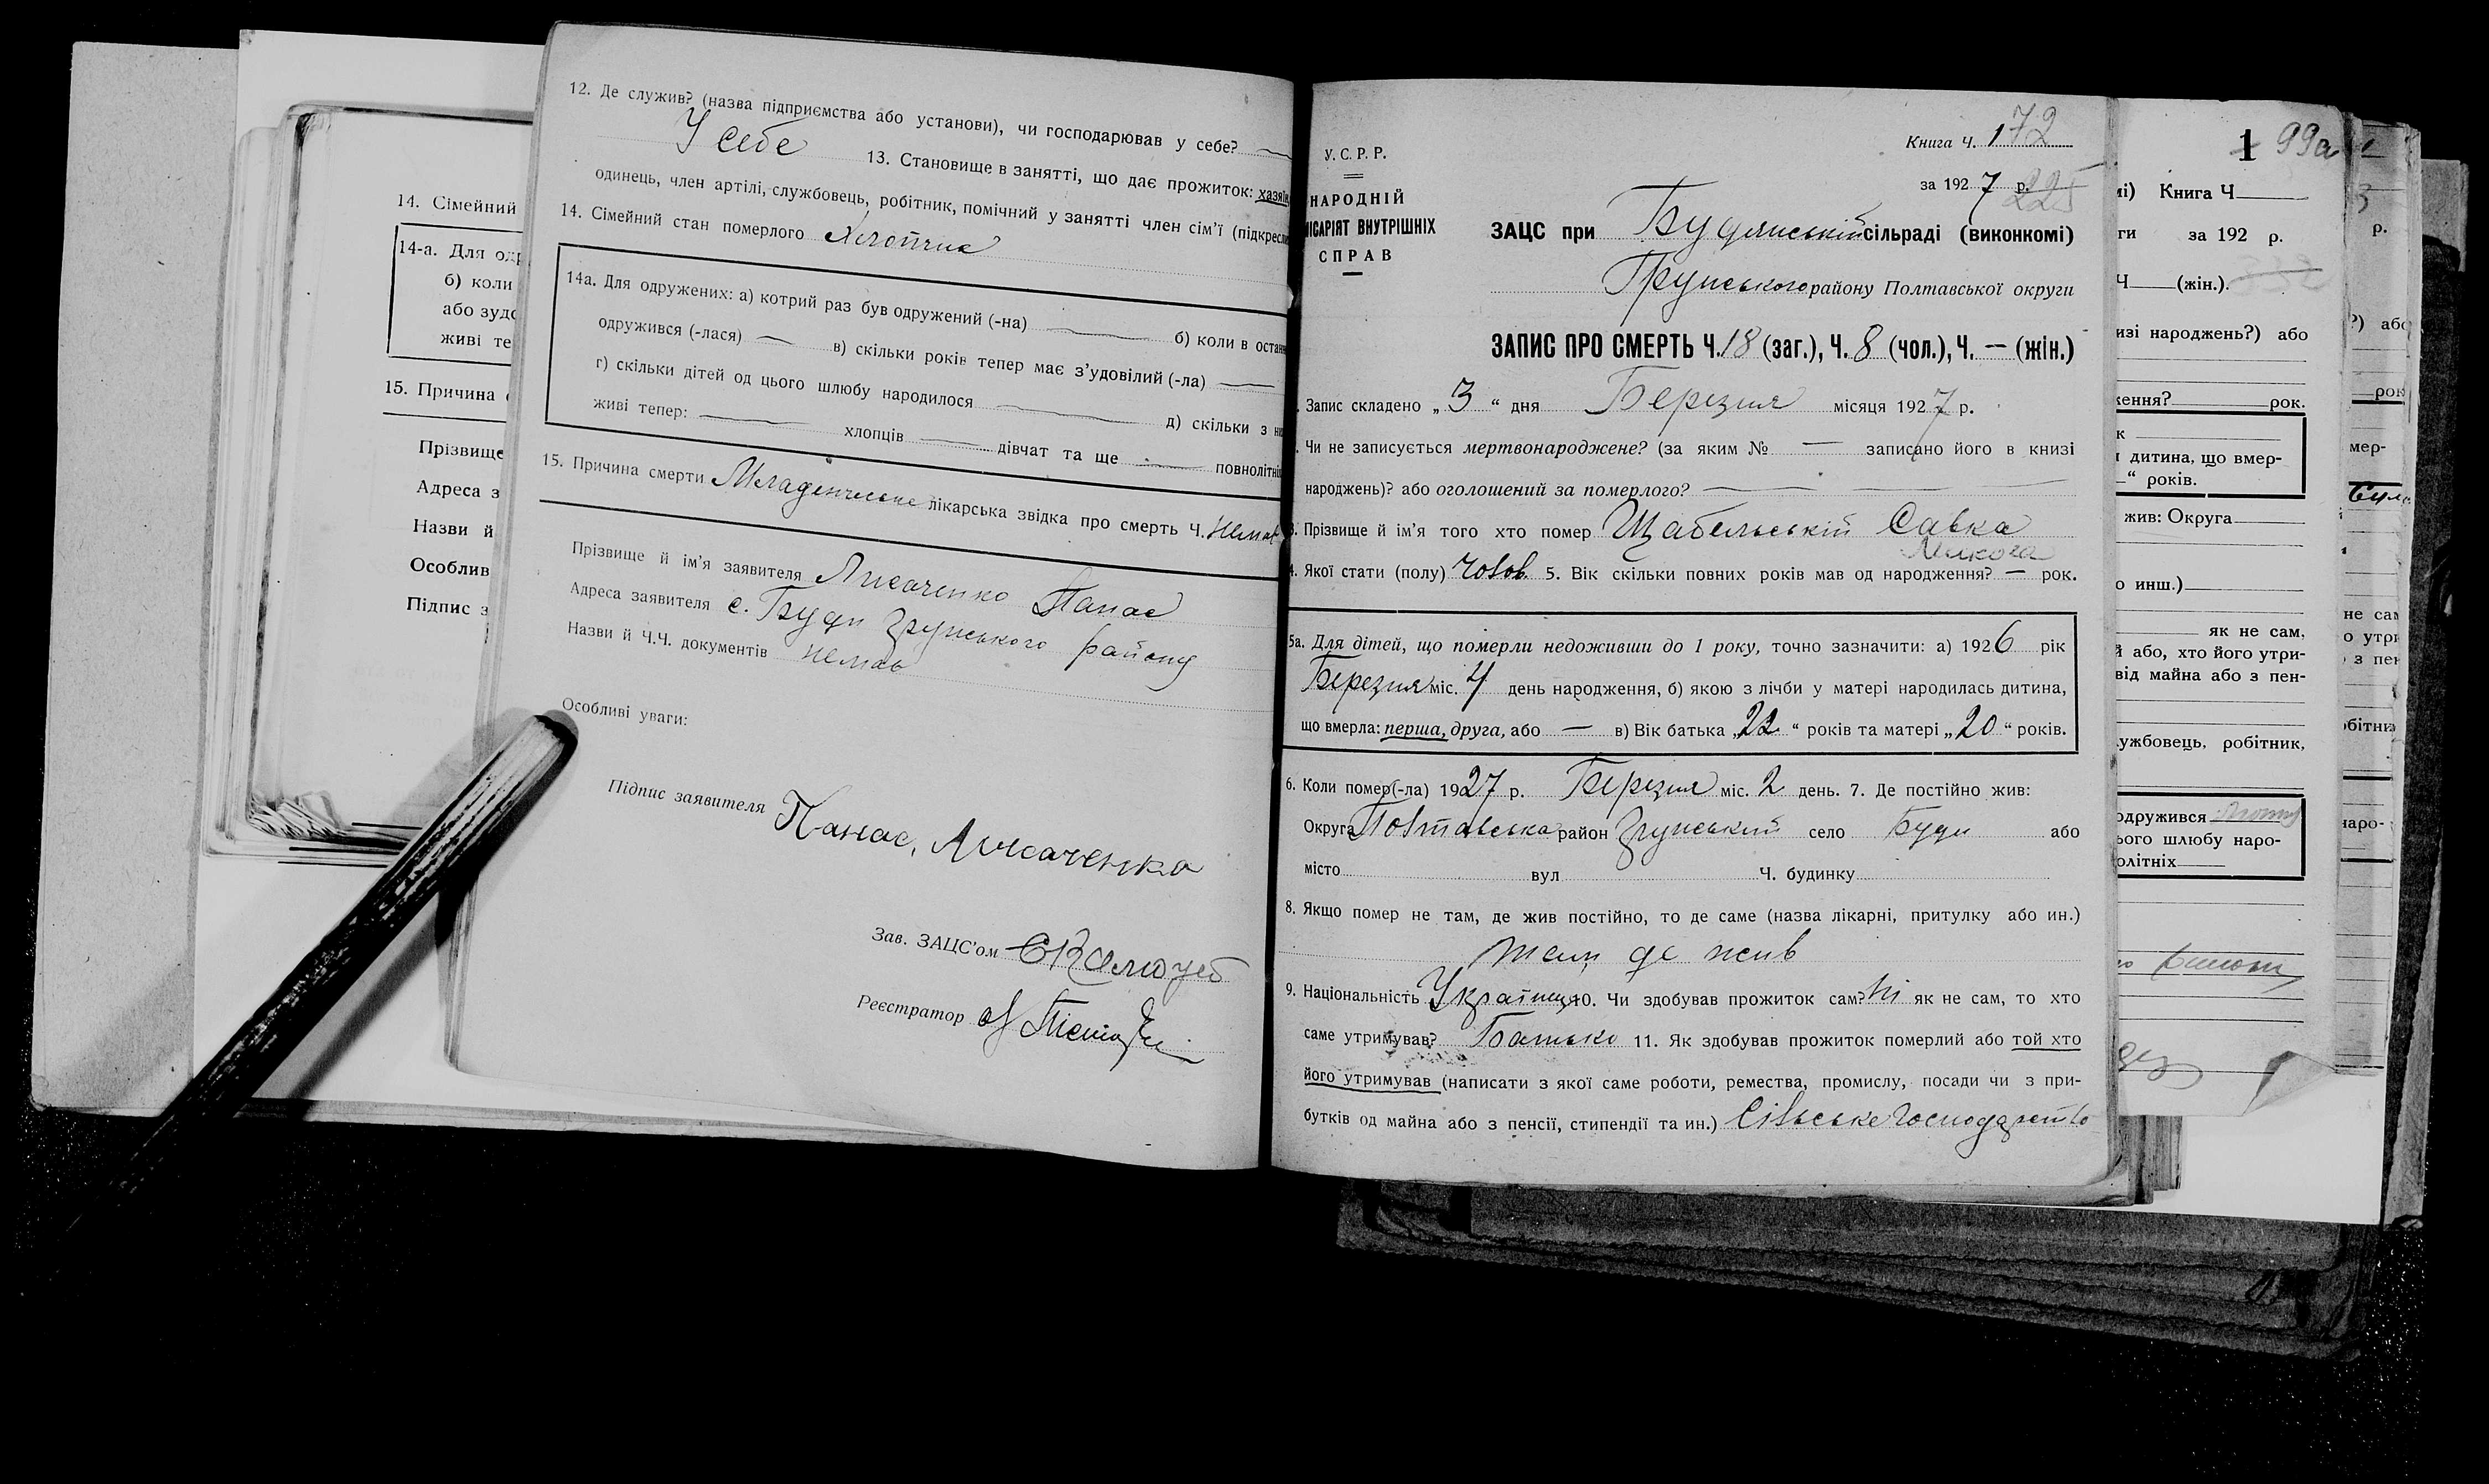 14. Сімейний
14-а. Для од
б) коли
або зудо
живі те
15. Причина
Прізвище
Адреса з
Назви й
Особлив
Підпис з
12. Де служив? (назва підприємства або установи), чи господарював у себе?
У себе 13. Становище в занятті, що дає прожиток: хазяїн,
одинець, член артілі, службовець, робітник, помічний у занятті член сім’ї (підкресли
14. Сімейний стан померлого Хлопчик
14а. Для одружених: а) котрий раз був одружений (-на) — б) коли в остан
одружився (-лася) — в) скільки років тепер має з’удовілий (-ла) —
г) скільки дітей од цього шлюбу народилося — д) скільки з ни
живі тепер: — хлопців — дівчат та ще — повнолітні
15. Причина смерти Младенческе лікарська звідка про смерть Ч. Немає
Прізвище й ім’я заявителя Лисаченко Панас
Адреса заявителя с. Буди Грунського району
Назви й Ч.Ч. документів немає
Особливі уваги:
Підпис заявителя Панас, Лисаченка
Зав. ЗАЦС’ом
Реєстратор
Книга Ч. 172
У. С. Р. Р.
за 1927 р. 225
НАРОДНІЙ
МІСАРІЯТ ВНУТРІШНІХ
СПРАВ
ЗАЦС при Будянській сільраді (виконкомі)
Грунського району Полтавської округи
ЗАПИС ПРО СМЕРТЬ Ч. 18 (заг.), Ч. 8 (чол.), Ч. — (жін.)
Запис складено „3“ дня Березня місяця 1927 р.
Чи не записується мертвонароджене? (за яким № — записано його в книзі
народжень)? або оголошений за померлого? —
3. Прізвище й ім’я того хто помер Щабельській Савка
Микола
4. Якої стати (полу) чолов. 5. Вік скільки повних років мав од народження? — рок.
5а. Для дітей, що померли недоживши до 1 року, точно зазначити: а) 1926 рік
Березня міс. 4 день народження, б) якою з лічби у матері народилась дитина,
що вмерла: перша, друга, або — в) Вік батька „22“ років та матері „20“ років.
6. Коли помер(-ла) 1927 р. Березня міс. 2 день. 7. Де постійно жив:
Округа Полтавська район Грунський село Буди або
місто вул Ч. будинку
8. Якщо помер не там, де жив постійно, то де саме (назва лікарні, притулку або ин.)
там де жив
9. Національність Українця 10. Чи здобував прожиток сам? Ні як не сам, то хто
саме утримував? Батько 11. Як здобував прожиток померлий або той хто
його утримував (написати з якої саме роботи, ремества, промислу, посади чи з при-
бутків од майна або з пенсії, стипендії та ин.) Сільське господарство
1 99а
мі) Книга Ч
ги за 192 р.
Ч (жін.).
изі народжень?) або
ення? рок.
к
дитина, що вмер-
“ років.
жив: Округа
о инш.)
як не сам,
й або, хто його утри-
від майна або з пен-
ужбовець, робітник,
одружився
ього шлюбу наро-
олітніх
р.
?) або
рок
мер-
не сам
о утри
з пен
обітни
наро-